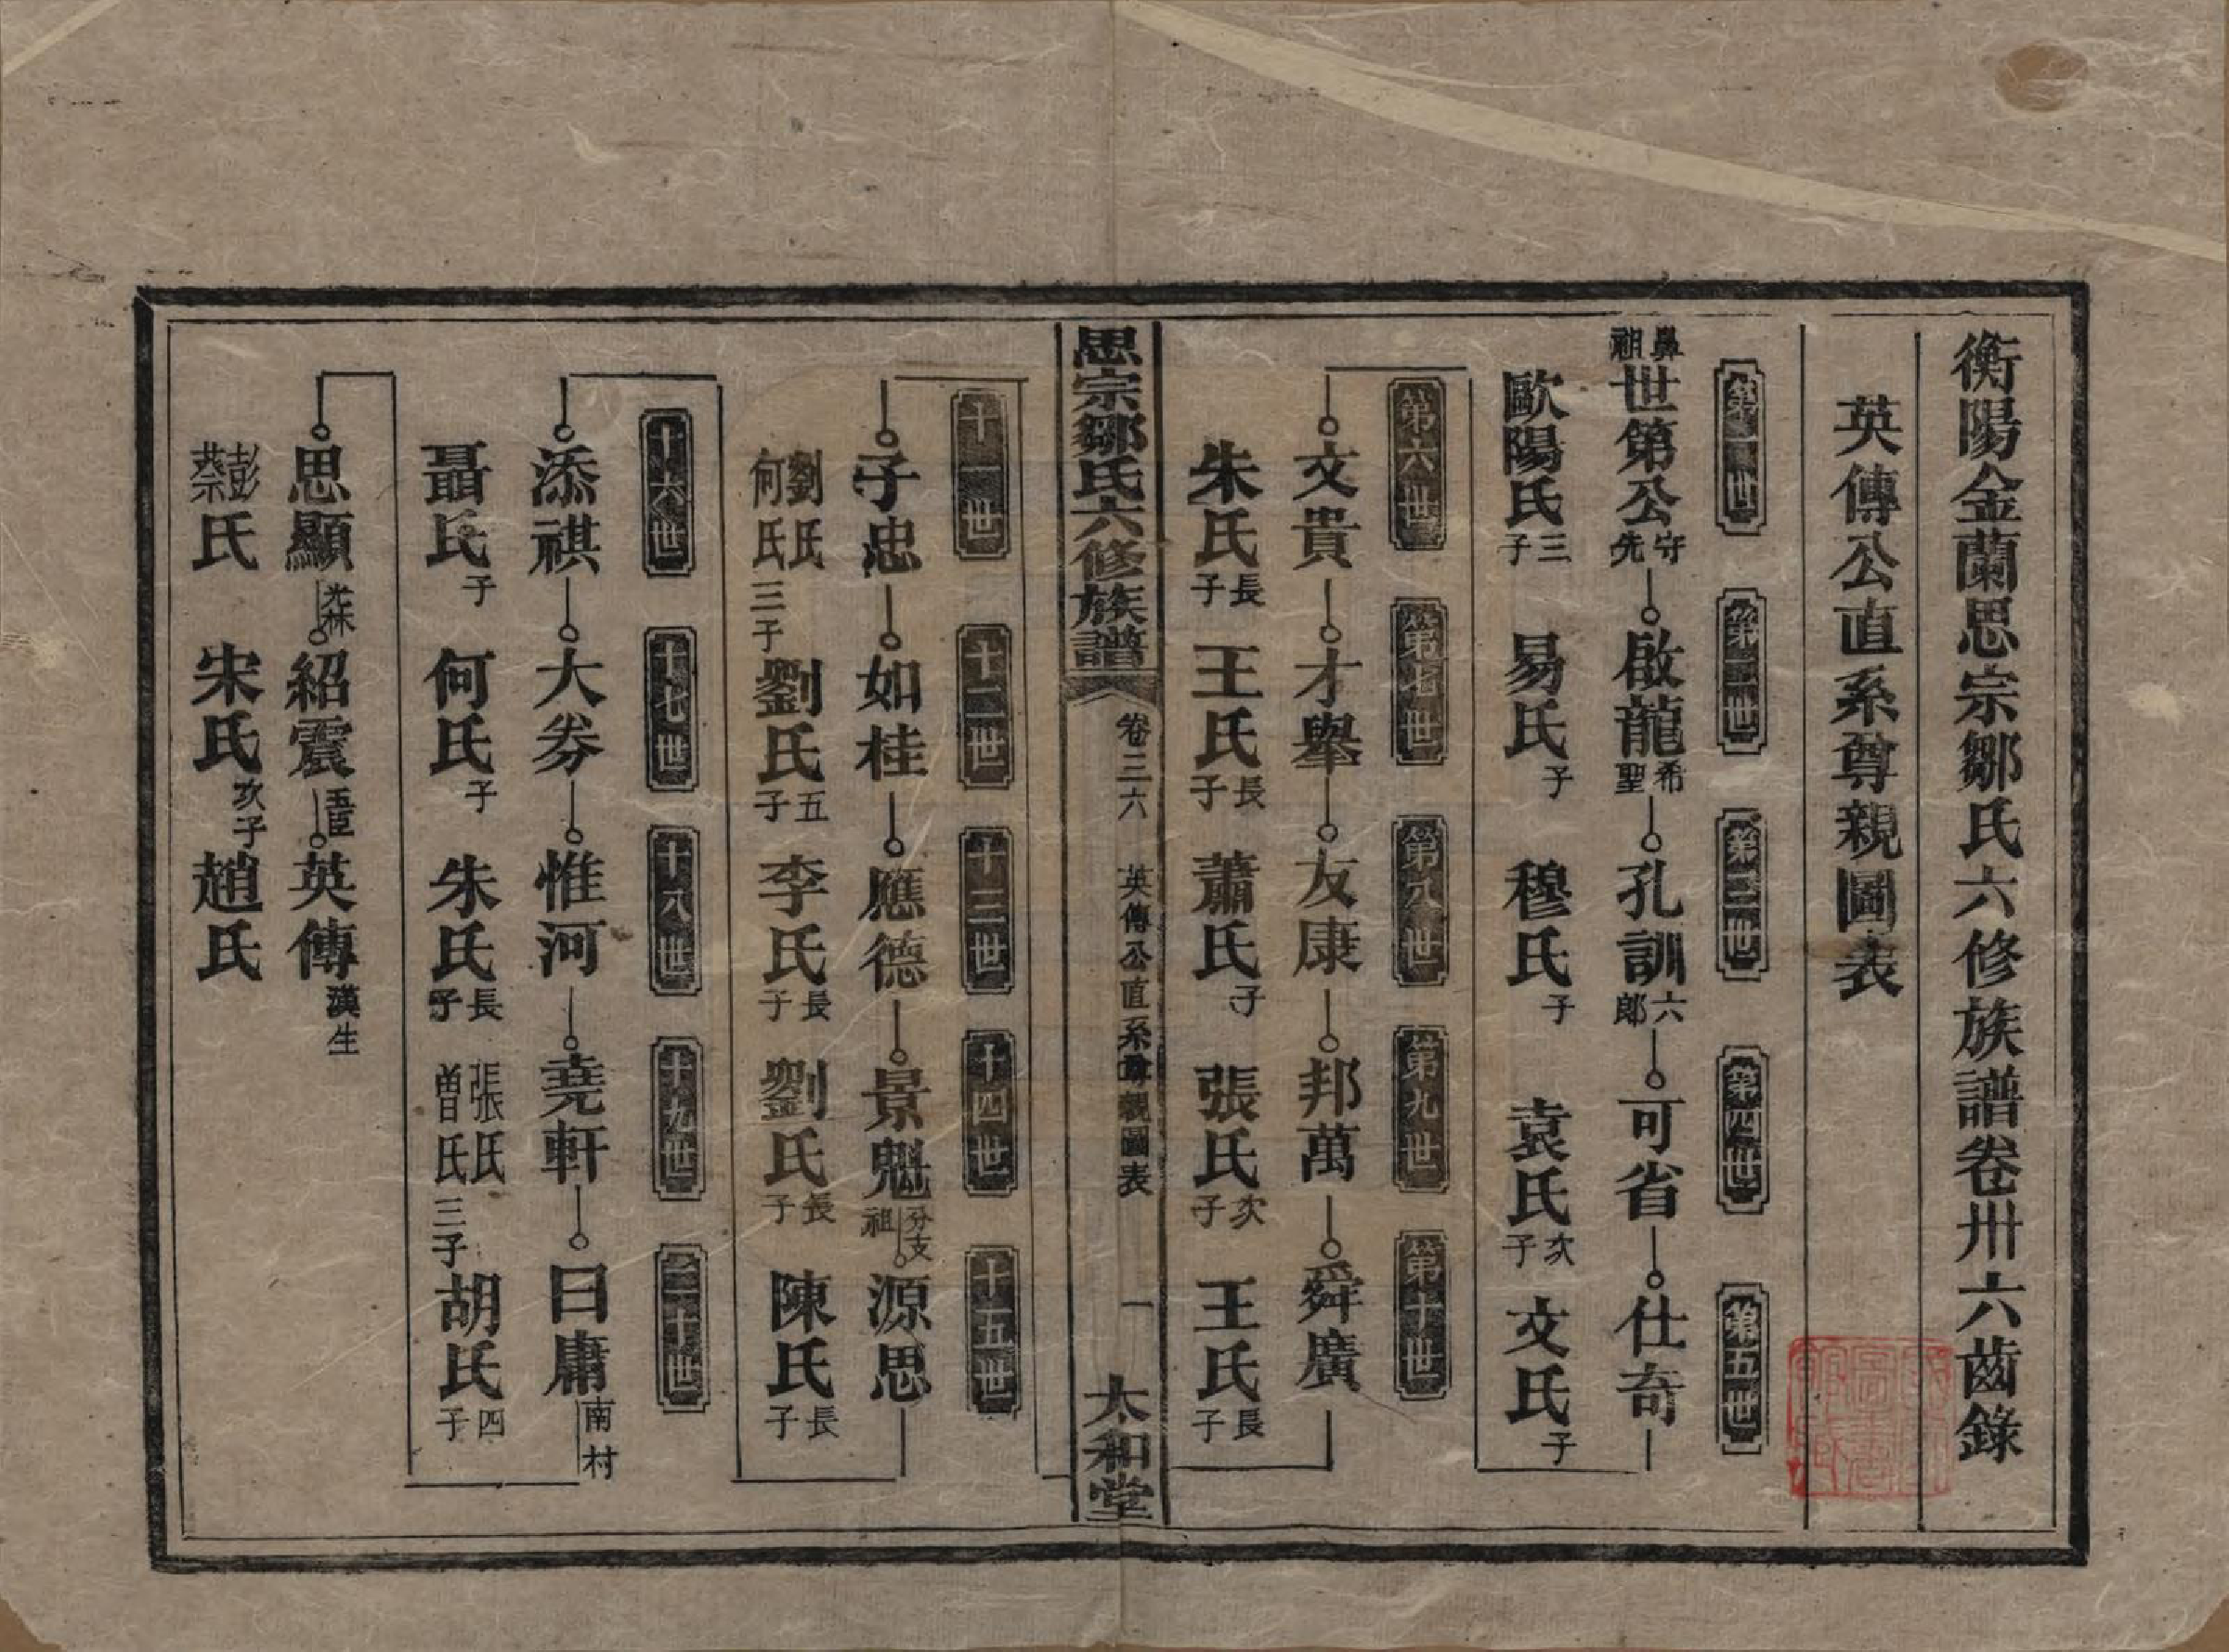 衡陽金蘭思宗鄒氏六修族譜卷卅六齒錄
英傳公直系尊親圖表
第一世 第二世 第三世 第四世 第五世
鼻祖 世第公 守先 啟龍 希聖 孔訓 六郎 可省 仕奇
歐陽氏 三子 易氏 子 穆氏 子 袁氏 次子 文氏 子
第六世 第七世 第八世 第九世 第十世
文貴 才舉 友康 邦萬 舜廣
朱氏 長子 王氏 長子 蕭氏 子 張氏 次子 王氏 長子
思宗鄒氏六修族譜 卷三六 英傳公直系尊親圖表 一 太和堂
十一世 十二世 十三世 十四世 十五世
子忠 如桂 應德 景魁 分支祖 源思
劉氏 何氏 三子 劉氏 五子 李氏 長子 劉氏 長子 陳氏 長子
十六世 十七世 十八世 十九世 二十世
添祺 大券 惟河 堯軒 日庸 南村
聶氏 子 何氏 子 朱氏 長子 張氏 曾氏 三子 胡氏 四子
思顯 紹震 英傳 漢生
彭蔡氏 宋氏 次子 趙氏